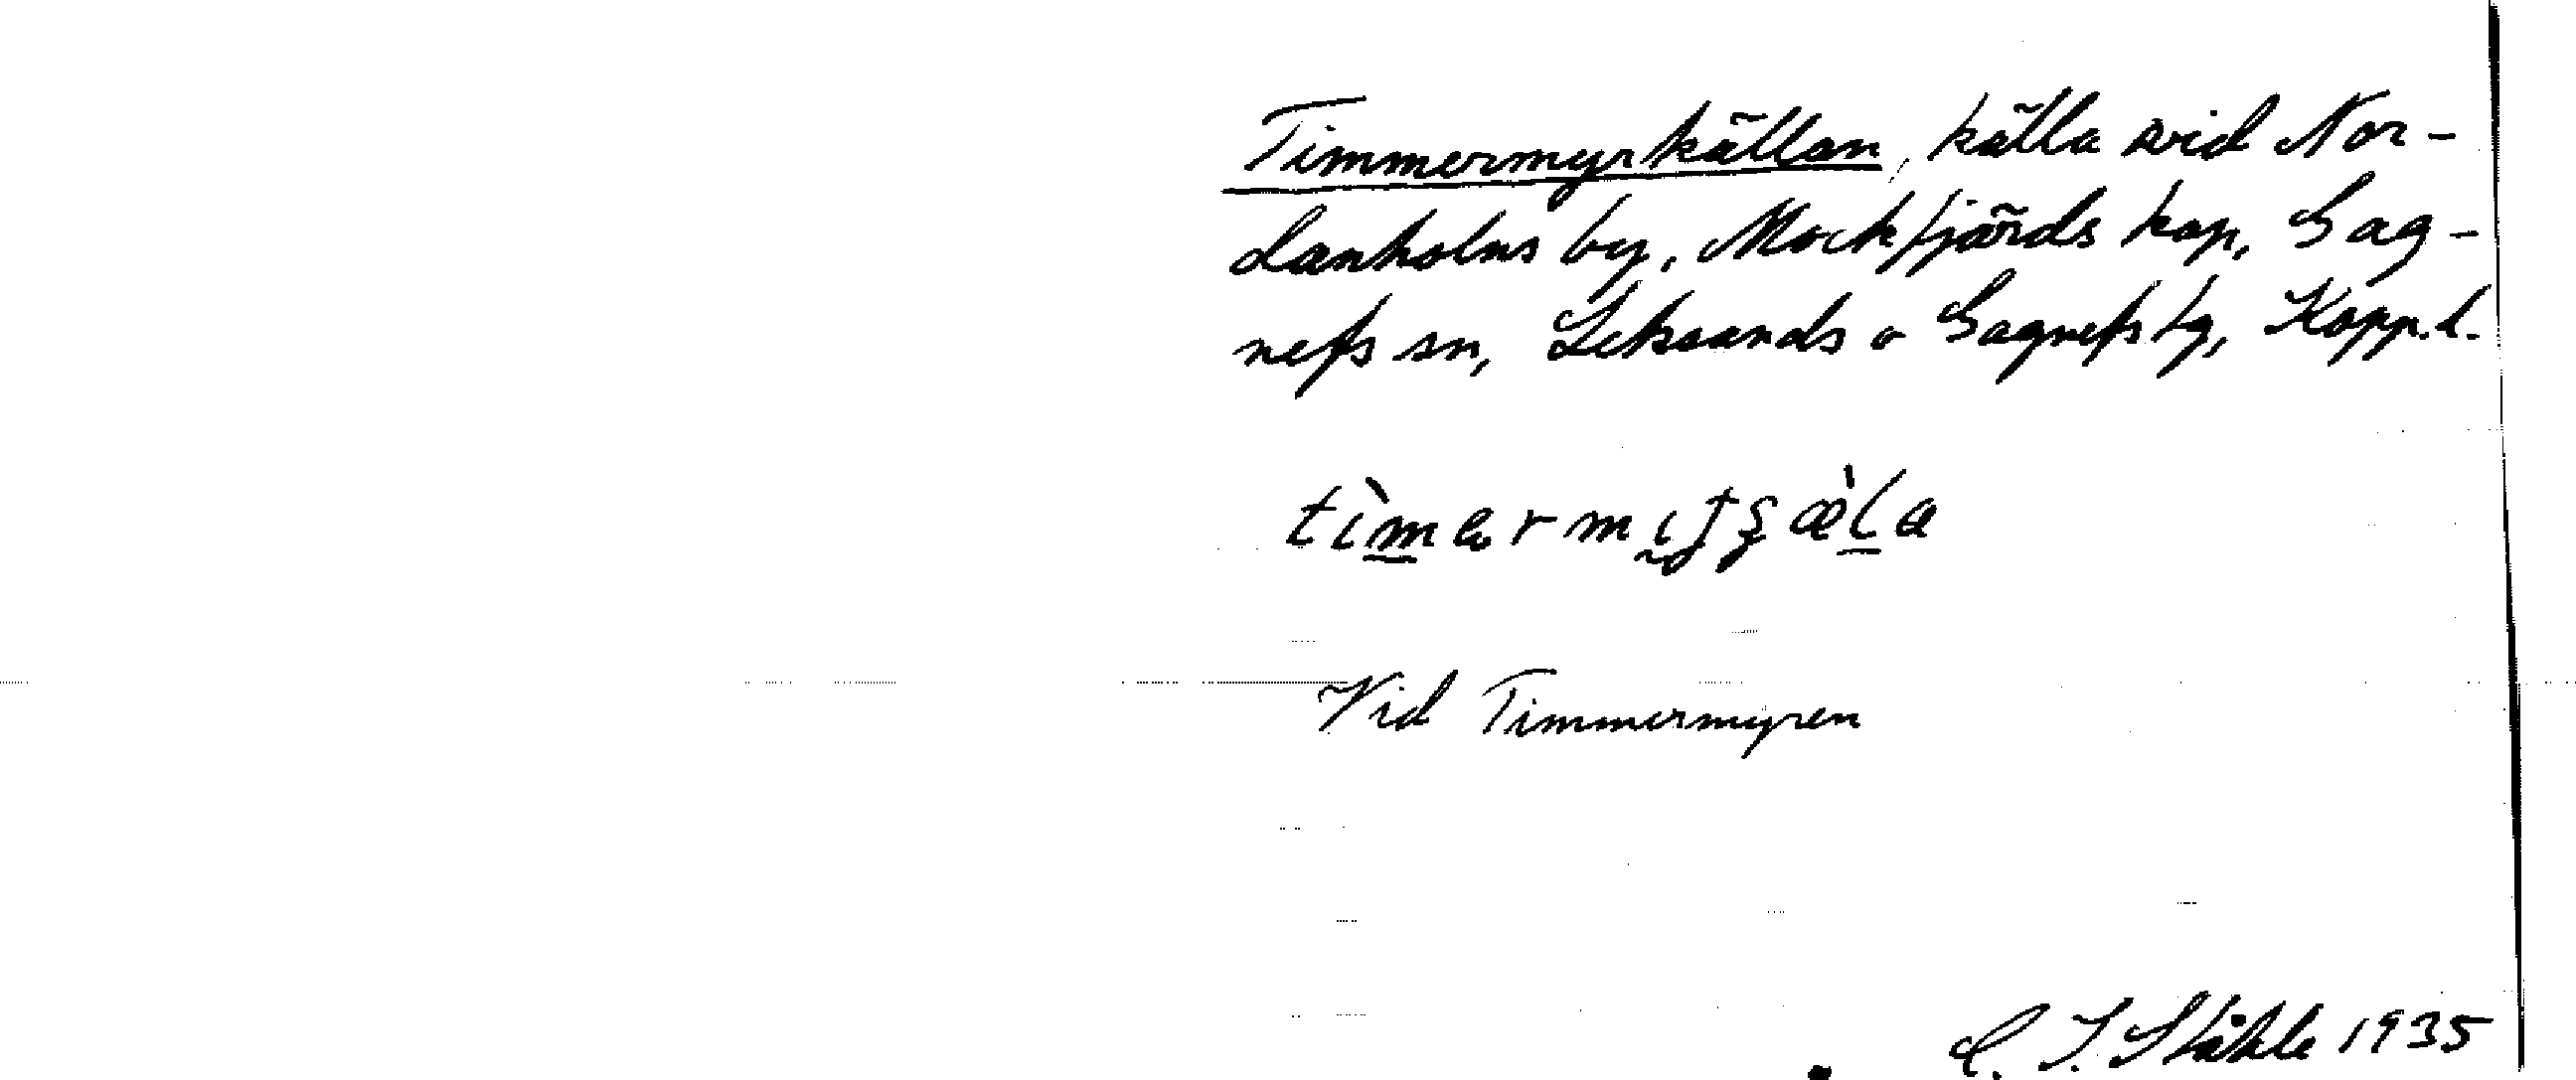 Timmermyrkällan, källa vid Nor-
lanholns by, Mockfjärds kap, Gag-
nefs sn, Leksands o Gagnefs tg, Kopp. l.
Vid Timmermyren
C. I. Ståhle 1935